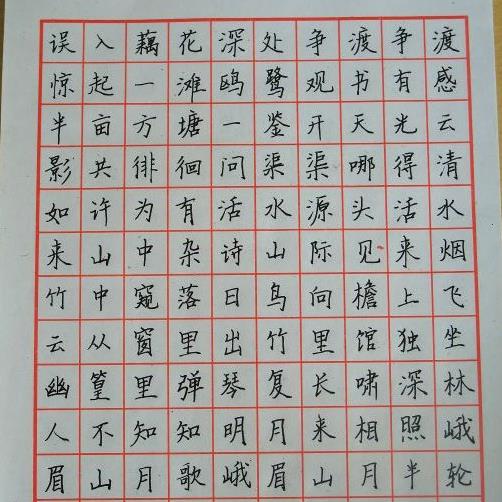 误入藕花深处争渡争渡
惊起一滩鸥鹭观书有感
半亩方塘一鉴开天光云
影共徘徊问渠渠哪得清
如许为有活水源头活水
来山中杂诗山际见来烟
竹中窥落日鸟向檐上飞
云从窗里出竹里馆独坐
幽篁里弹琴复长啸深林
人不知知明月来相照峨
眉山月歌峨眉山月半轮